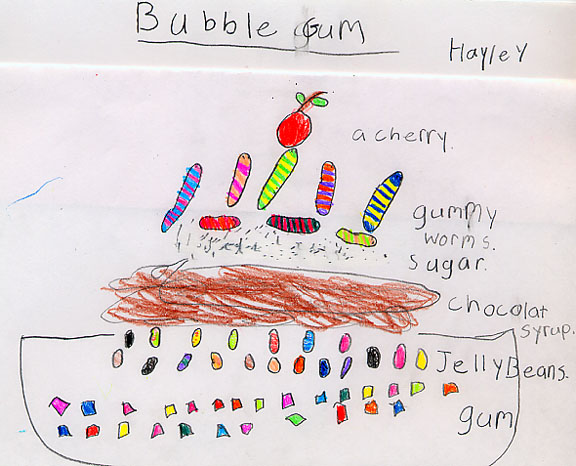 Bubble Gum
Hayley
a cherry.
gummy
worms.
sugar.
chocolat
syrup.
Jelly Beans.
gum